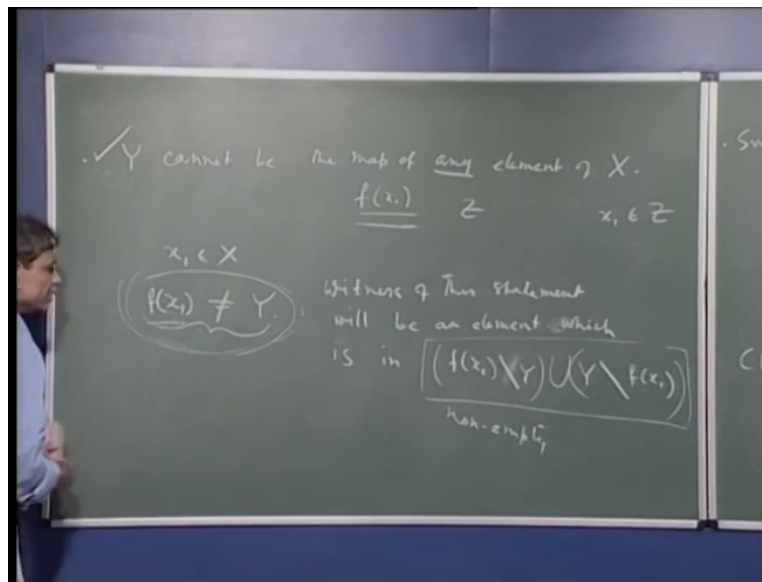 . ✓ Y cannot be the map of any element of X.
f(x₁) Z x₁ ∈ Z
x₁ ∈ X
f(x₁) ≠ Y.
Witness of This statement
will be an element which
is in (f(x₁) \ Y) ∪ (Y \ f(x₁))
non-empty